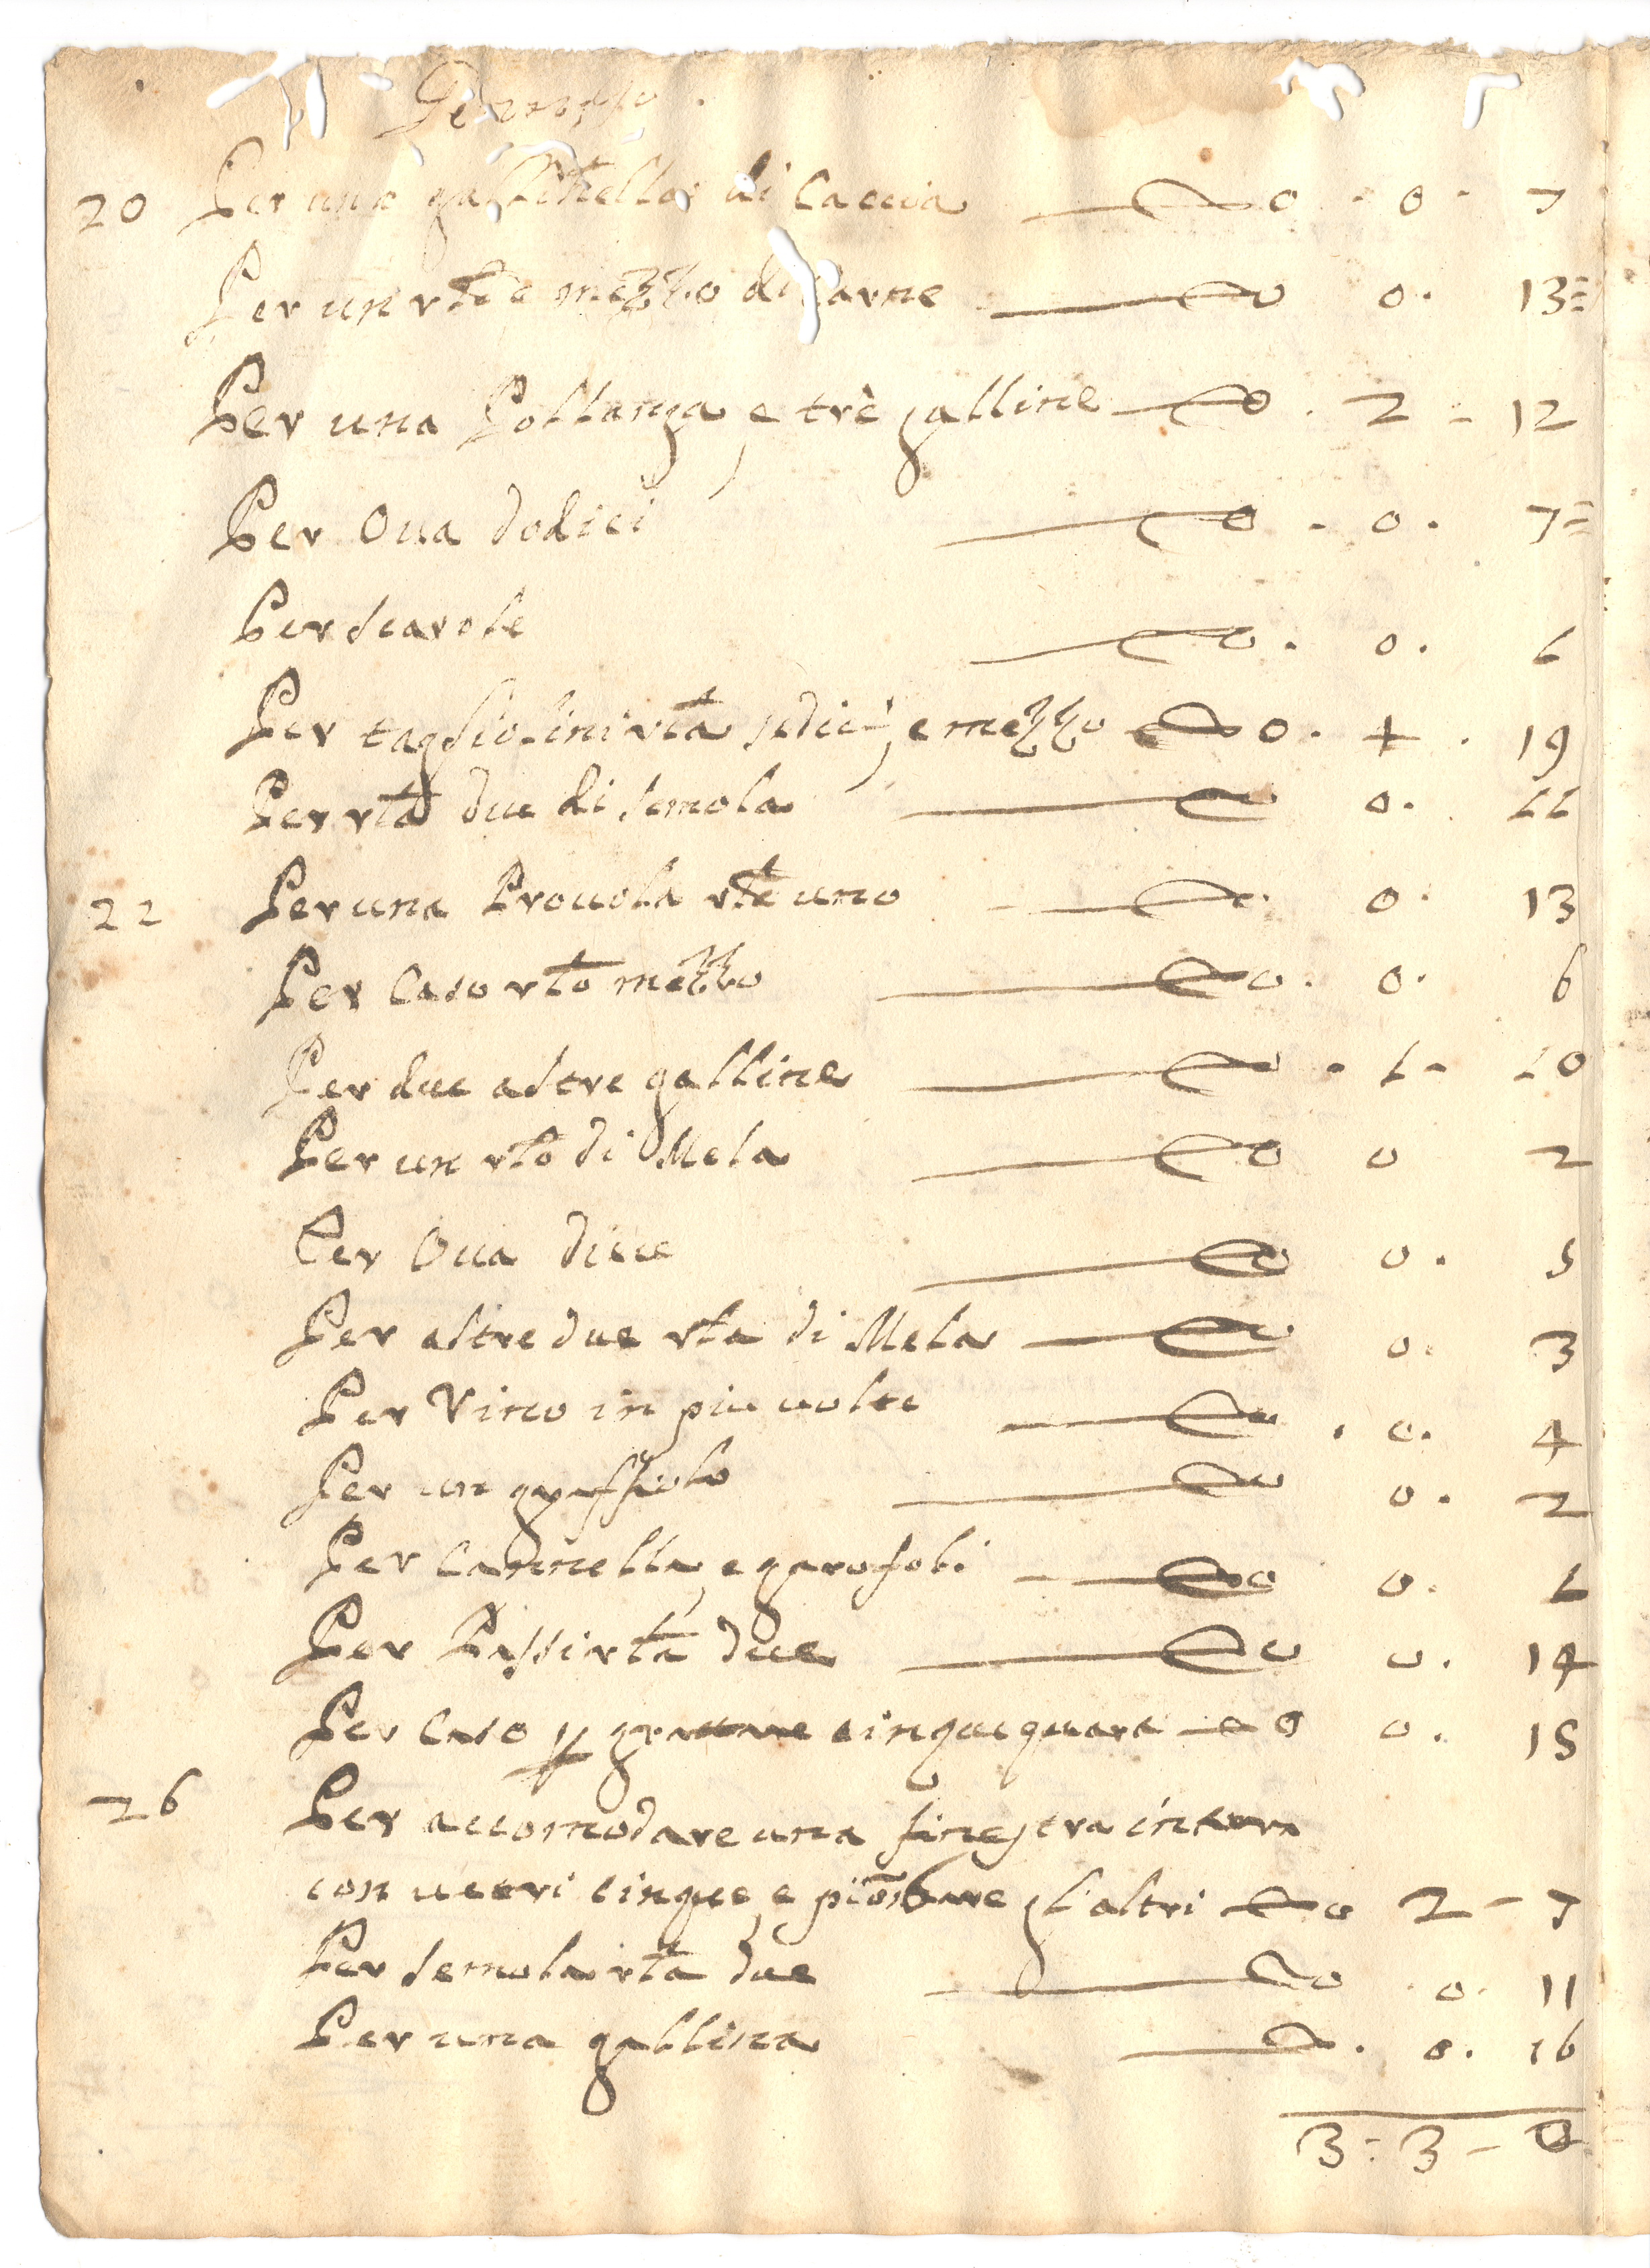 Gennaro.
20 Per una gallinella di Caccia 0 . 0 . 7
Per un rt̄o e mezzo di Carne 0 0 . 13=
Per una Pollanga, e trè galline 0 . 2 - 12
Per Oua dodici 0 . 0 . 7=
Per scarole 0 . 0 . 1
Per tagliolini rt̄a sedici, e mezzo 0 . 4 . 19
Per rt̄a due di semola 0 . 11
22 Per una Prouola rt̄o uno 0 . 13
Per Caso rt̄o mezzo 0 . 0 . 6
Per due altre galline . 1 - 10
Per un rt̄o di Mela 0 0 2
Per Oua diece 0 0 . 5
Per altre due rt̄a di Mela 0 0 . 3
Per Vino in più uolte . 0 . 4
Per un 0 0 . 2
Per Cannella, e garofoli 0 0 . 1
Per Passi rt̄a due 0 0 . 14
Per Caso cinque quara 0 0 . 15
26 Per accomodare una finestra
con uetri cinque, e piōbare gl'altri 0 2 - 7
Per semola rt̄a due 0 . 0 . 11
Per una gallina . 0 . 16
3 : 3 - 0